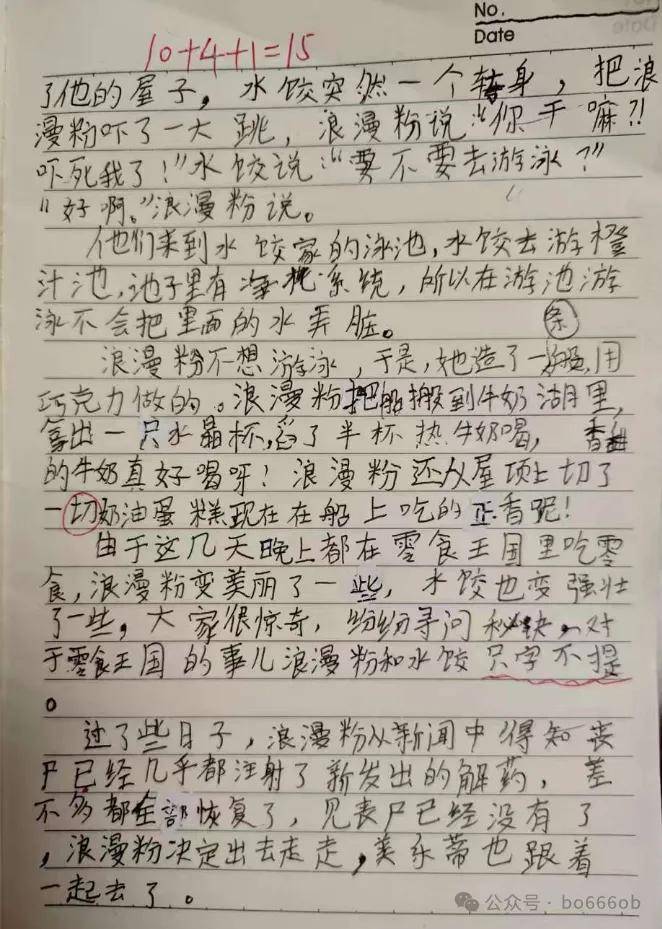 No.
Date
10+4+1=15
了他的屋子，水饺突然一个转身，把浪
漫粉吓了一大跳，浪漫粉说“你干嘛?!
吓死我了！”水饺说：“要不要去游泳？”
“好啊。”浪漫粉说。
他们来到水饺家的泳池，水饺去游橙
汁池，池子里有净化系统，所以在游池游
泳不会把里面的水弄脏。
条
浪漫粉不想游泳，于是，她造了一船，用
巧克力做的。浪漫粉把船搬到牛奶湖里，
拿出一只水晶杯，舀了半杯热牛奶喝，香甜
的牛奶真好喝呀！浪漫粉还从屋顶上切了
一切奶油蛋糕现在在船上吃的正香呢！
由于这几天晚上都在零食王国里吃零
食，浪漫粉变美丽了一些，水饺也变强壮
了一些，大家很惊奇，纷纷寻问秘诀，对
于零食王国的事儿浪漫粉和水饺只字不提
。
过了些日子，浪漫粉从新闻中得知丧
尸已经几乎都注射了新发出的解药，差
不多都全部恢复了，见丧尸已经没有了
，浪漫粉决定出去走走，美乐蒂也跟着
一起去了。
公众号·bo666ob